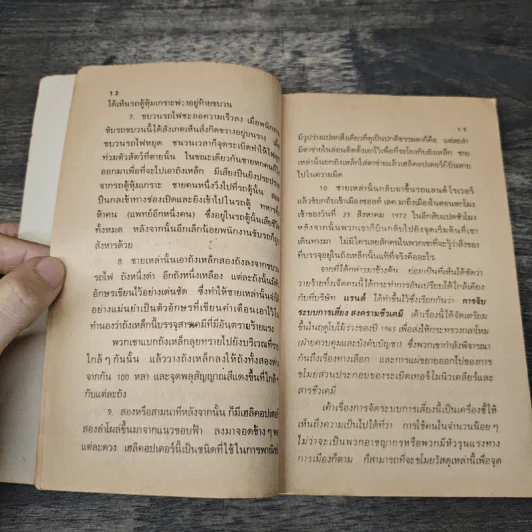 ๑๐
ได้เห็นรถตู้หุ้มเกราะพ่วงอยู่ท้ายขบวน
7. ขบวนรถไฟชะลอความเร็วลง เมื่อพนักงาน
ขับรถขบวนนี้ได้สังเกตเห็นสิ่งกีดขวางอยู่บนราง เมื่อ
ขบวนรถไฟหยุด ชนวนเวลาก็จุดระเบิดทำให้ไฟลุก
ท่วมตัวสัตว์ที่ตายนั้น ในขณะเดียวกันชายหกคนก็วิ่ง
ออกมาเพื่อที่จะไปเอาถังเหล็ก มีเสียงปืนยิงประปราย
จากรถตู้หุ้มเกราะ ชายคนหนึ่งวิ่งไปที่รถตู้นั้น
ปืนกลเข้าทางช่องเปิดและยิงเข้าไปในรถตู้ ทหาร
ห้าคน (แพทย์อีกหนึ่งคน) ซึ่งอยู่ในรถตู้นั้นเสียชีวิต
ทั้งหมด หลังจากนั้นอีกเล็กน้อยพนักงานขับรถก็ถูก
สังหารด้วย
8. ชายเหล่านั้นเอาถังเหล็กสองถังลงจากขบวน
รถไฟ ถังหนึ่งดำ อีกถังหนึ่งเหลือง แต่ละถังนั้นมี
อักษรเขียนไว้อย่างเด่นชัด ซึ่งทำให้ชายเหล่านั้น
อย่างแม่นยำเป็นตัวอักษรที่เขียนคำเตือนเอาไว้ใน
ทำนองว่าถังเหล็กนี้บรรจุสารเคมีที่มีอันตรายร้ายแรง
พวกเขาแบกถังเหล็กลุยทรายไปยังบริเวณที่ราบ
ใกล้ ๆ กันนั้น แล้ววางถังเหล็กลงให้ถังทั้งสองห่าง
จากกัน 100 หลา และจุดพลุสัญญาณสีแดงขึ้นที่ใกล้ ๆ
กับแต่ละถัง
9. สองหรือสามนาทีหลังจากนั้น ก็มีเฮลิคอปเตอร์
สองลำโผล่ขึ้นมาจากแนวขอบฟ้า ลงมาจอดข้าง ๆ
แต่ละดวง เฮลิคอปเตอร์นี้เป็นชนิดที่ใช้ในการพาณิชย์
๑๑
มีรูปร่างแปลกสิ่งเดียวที่ดูเป็นปกติธรรมดาก็คือ แต่ละลำ
มีตาข่ายในล่อนติดตั้งเอาไว้เพื่อที่จะโยงกับถังเหล็ก ชาย
เหล่านั้นยกถังเหล็กใส่ตาข่ายแล้วเฮลิคอปเตอร์ก็บินหาย
ไปในความมืด
10. ชายเหล่านั้นกลับมาขึ้นรถแลนด์ โรเวอร์
แล้วขับกลับเข้าเมืองซอลท์ เลค มาถึงเมืองในตอนหกโมง
เช้าของวันที่ 23 สิงหาคม 1972 ในอีกสิบแปดชั่วโมง
หลังจากนั้นพวกเขาก็บินกลับไปยังจุดเริ่มต้นที่เขา
เดินทางมา ไม่มีใครเลยสักคนในพวกเขาที่จะรู้ว่าสิ่งของ
ที่บรรจุอยู่ในถังเหล็กนั้นแท้ที่จริงคืออะไร
จากที่ได้กล่าวมาข้างต้น ย่อมกันที่เห็นได้ชัดว่า
วายร้ายทั้งเจ็ดคนนี้ได้กระทำการอันเปรียบได้ใกล้เคียง
กับที่บริษัท แรนด์ ได้ทำขึ้นไว้ซึ่งเรียกกันว่า การจัด
ระบบการเสี่ยง สงครามชีวเคมี เค้าเรื่องนี้ได้จัดเตรียม
ขึ้นในฤดูใบไม้ร่วงของปี 1965 เพื่อส่งให้กระทรวงกลาโหม
(ฝ่ายควบคุมและบังคับบัญชา) ซึ่งพวกเขากำลังพิจารณา
กันถึงเรื่องทางเลือก และการแผ่ขยายออกไปของการ
ขโมยส่วนประกอบของระเบิดเทอร์โมนิวเคลียร์และ
สารชีวเคมี
เค้าเรื่องการจัดระบบการเสี่ยงนี้เป็นเครื่องชี้ให้
เห็นถึงความเป็นไปได้ที่ว่า การใช้คนในจำนวนน้อย ๆ
ไม่ว่าจะเป็นพวกอาชญากรหรือพวกมีหัวรุนแรงทาง
การเมืองก็ตาม ก็สามารถที่จะขโมยวัสดุเหล่านี้เพื่อจุด